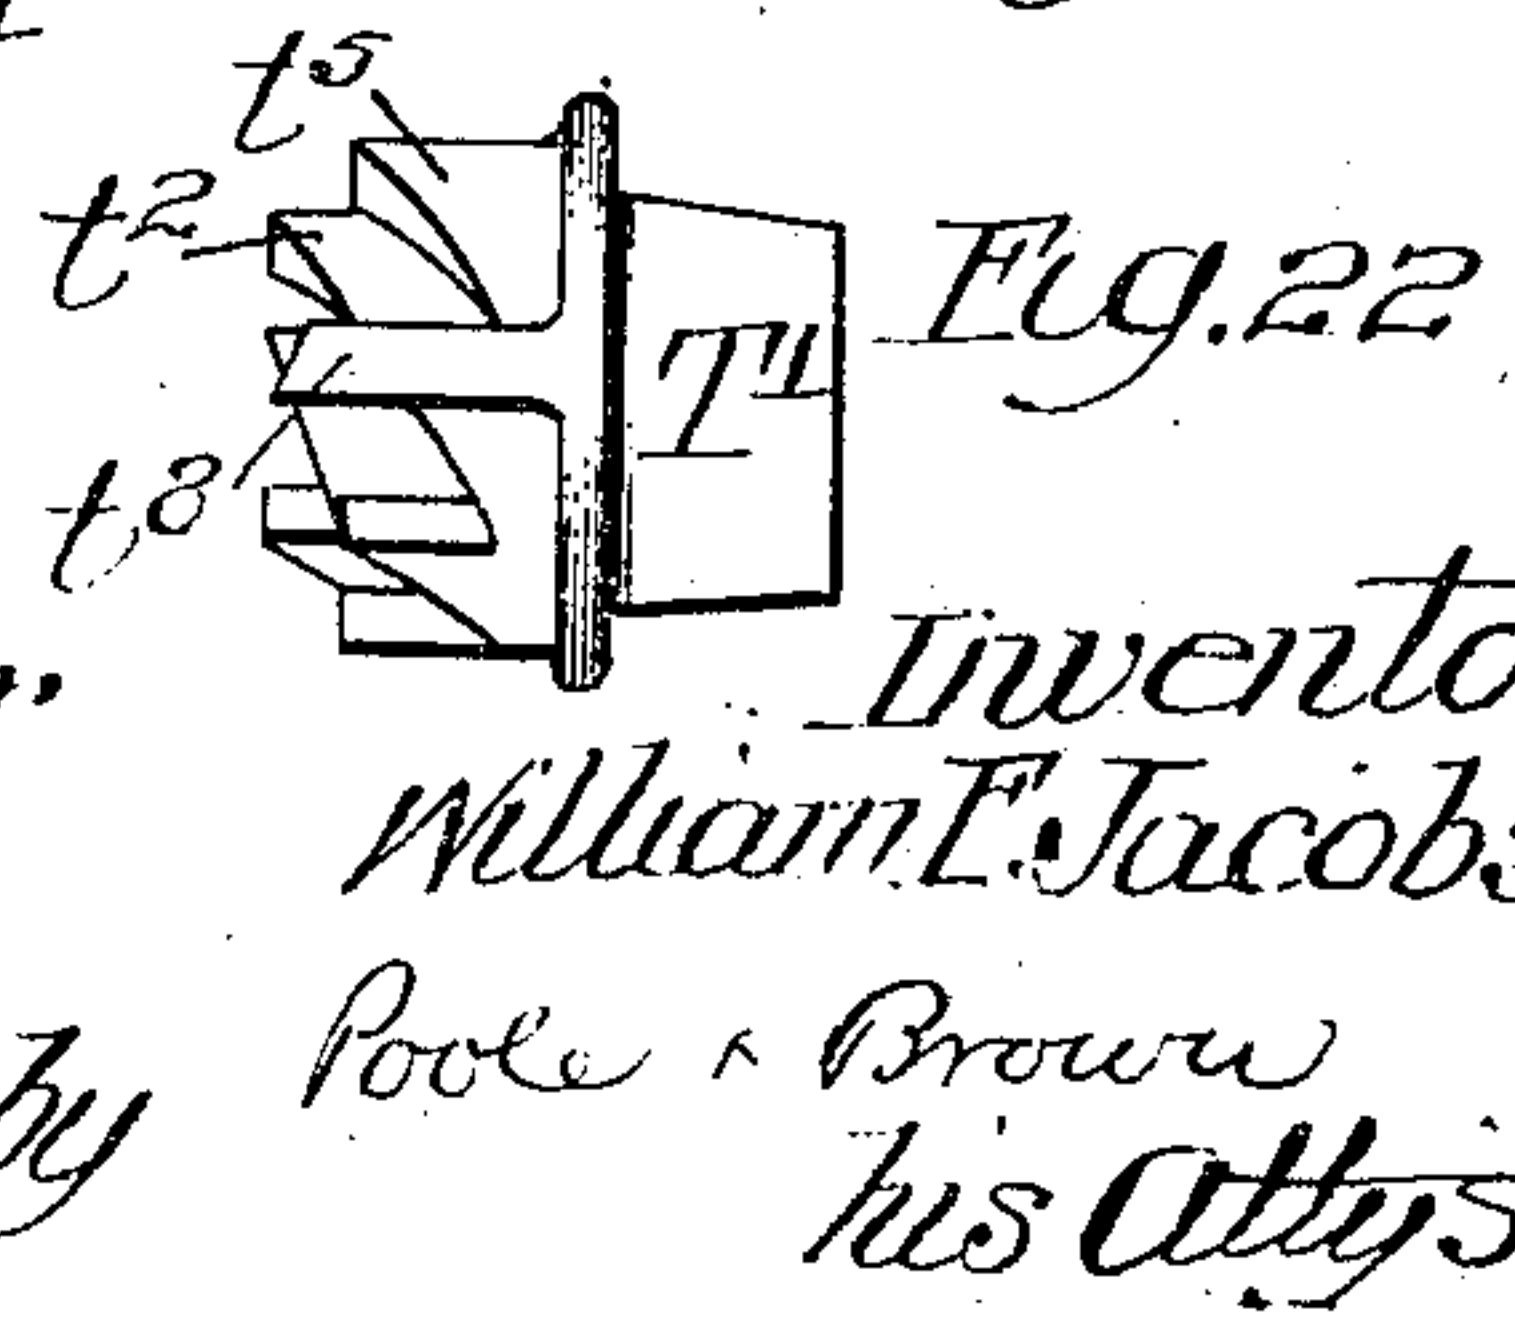 t⁵
t²
Fig. 22
T¹
t⁸
Invento
William E. Jacobs
by Poole & Brown
his Attys